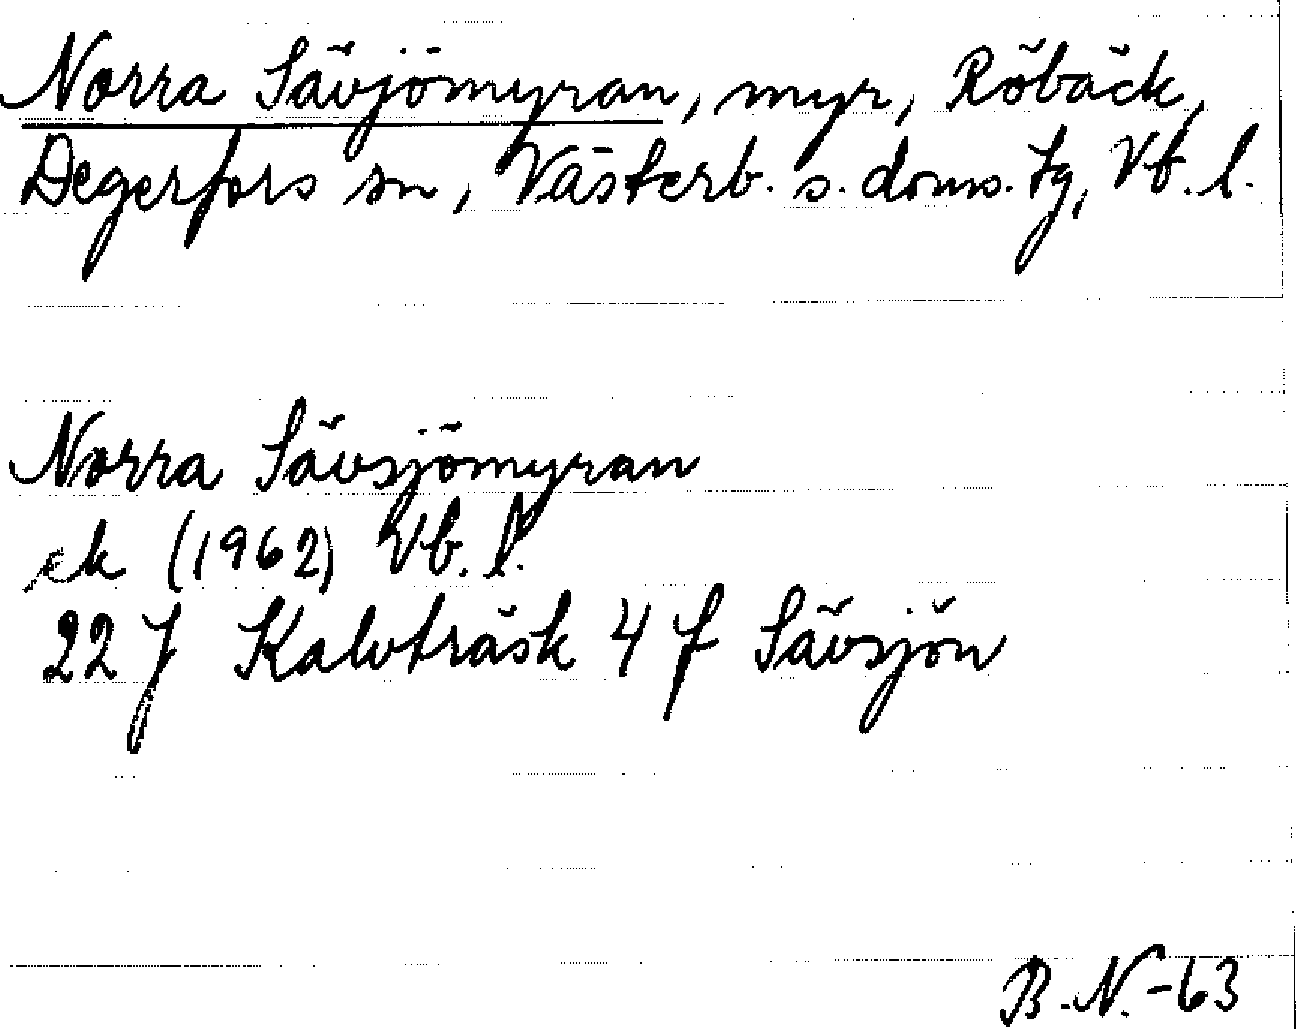 Norra Sävjömyran, myr, Röbäck,
Degerfors sn, Västerb. s. doms. tg, Vb. l.
Norra Sävsjömyran
ek (1962) Vb. l.
22 J Kalvträsk 4 f Sävsjön
B.N.-63